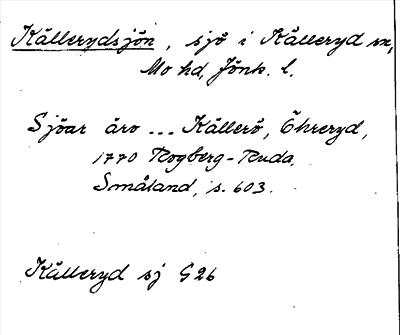 Källerydsjön, sjö i Källeryd sn,
Mo hd, Jönk. l.
Sjöar äro ... Källerö, Öhreryd,
1770 Rogberg-Ruda,
Småland, s. 603.
Källeryd sj G26